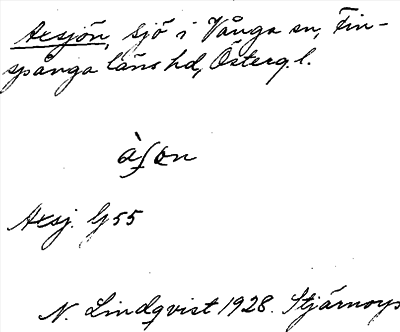 Axsjön, sjö i Vånga sn, Fin-
spånga läns hd, Österg. l.
Axsj. G 55
N. Lindqvist 1928. Stjärnorp